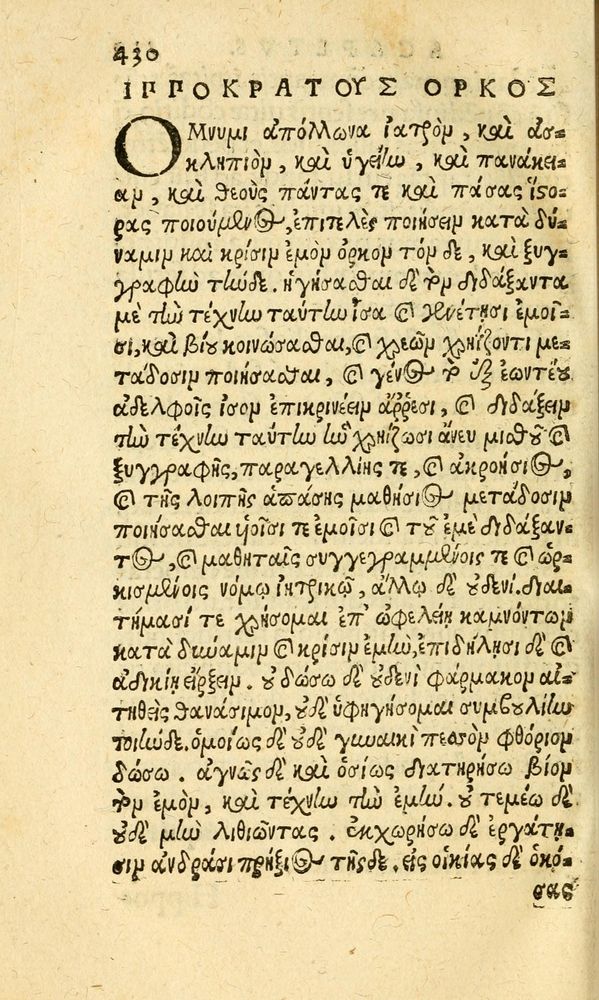 430
ΙΠΠΟΚΡΑΤΟΥΣ ΟΡΚΟΣ
ΟΜνυμι ἀπόλλωνα ἰατρὸν, καὶ ἀσ-
κληπιὸν, καὶ ὑγείην, καὶ πανάκει-
αν, καὶ θεοὺς πάντας τε καὶ πάσας ἵστο-
ρας ποιούμενος, ἐπιτελὲς ποιήσειν κατὰ δύ-
ναμιν καὶ κρίσιν ἐμὸν ὅρκον τόν δε, καὶ ξυγ-
γραφὴν τήνδε. ἡγήσασθαι δὲ τὸν διδάξαντα
μὲ τὴν τέχνην ταύτην ἶσα καὶ γενέτῃσι ἐμοῖ-
σι, καὶ βίου κοινώσασθαι, καὶ χρεῶν χρηίζοντι με-
τάδοσιν ποιήσασθαι, καὶ γένος τὸ ἐξ ἑωυτέου
ἀδελφοῖς ἴσον ἐπικρινέειν ἄῤῥεσι, καὶ διδάξειν
τὴν τέχνην ταύτην ἢν χρηίζωσι ἄνευ μισθοῦ καὶ
ξυγγραφῆς, παραγελλίης τε, καὶ ἀκροήσιος,
καὶ τῆς λοιπῆς ἁπάσης μαθήσιος μετάδοσιν
ποιήσασθαι υἱοῖσι τε ἐμοῖσι καὶ τοῦ ἐμὲ διδάξαν-
τος, καὶ μαθηταῖς συγγεγραμμένοις τε καὶ ὡρ-
κισμένοις νόμῳ ἰητρικῷ, ἄλλῳ δὲ οὐδενί. διαι-
τήμασί τε χρήσομαι ἐπ' ὠφελείῃ καμνόντων
κατὰ δύναμιν καὶ κρίσιν ἐμὴν, ἐπιδηλήσι δὲ καὶ
ἀδικίῃ εἴρξειν. οὐ δώσω δὲ οὐδενὶ φάρμακον αἰ-
τηθεὶς θανάσιμον, οὐδὲ ὑφηγήσομαι συμβουλίην
τοιήνδε. ὁμοίως δὲ οὐδὲ γυναικὶ πεσσὸν φθόριον
δώσω. ἁγνῶς δὲ καὶ ὁσίως διατηρήσω βίον
τὸν ἐμὸν, καὶ τέχνην τὴν ἐμήν. οὐ τεμέω δὲ
οὐδὲ μὴν λιθιῶντας. ἐκχωρήσω δὲ ἐργάτη-
σιν ἀνδράσι πρήξιος τῆσδε. εἰς οἰκίας δὲ ὁκό-
σας